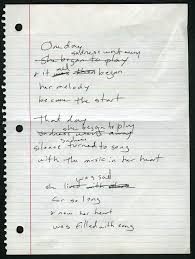 One day
sadness went away
she began to play
& it all began
her melody
become the start
That day
she began to play
sadness went away
sadness
silence turned to song
with the music in her heart
was sad
she lived with
for so long
& now her heart
was filled with song